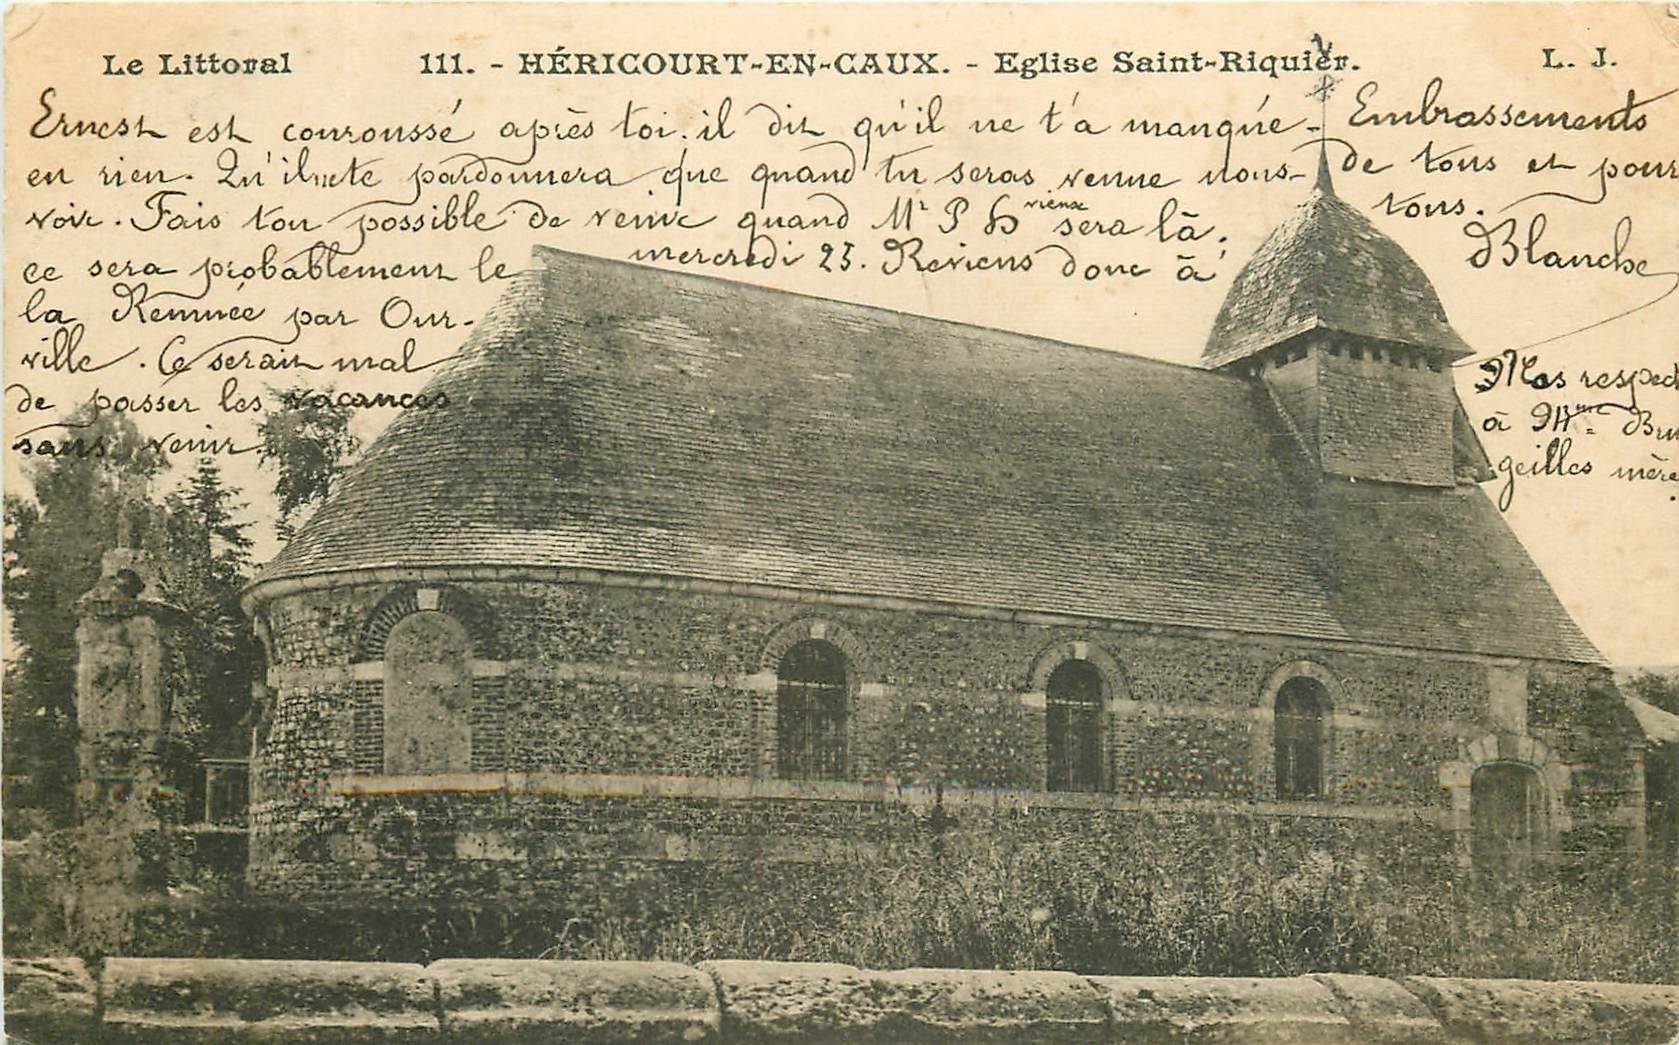 Le Littoral 111. - HÉRICOURT-EN-CAUX. - Eglise Saint-Riquier. L. J.
Ernest est couroussé après toi. il dit qu'il ne t'a manquée
en rien. Qu'il te pardonnera que quand tu seras venue nous
voir. Fais ton possible de venir quand Mr P H vieux sera là.
ce sera probablement le mercredi 25. Reviens donc à
la Remuée par Our-
ville. Ce serait mal
de passer les vacances
sans venir.
Embrassements
de tous et pour
tous.
Blanche
Mes respect
à Mme Bru
geilles mère.